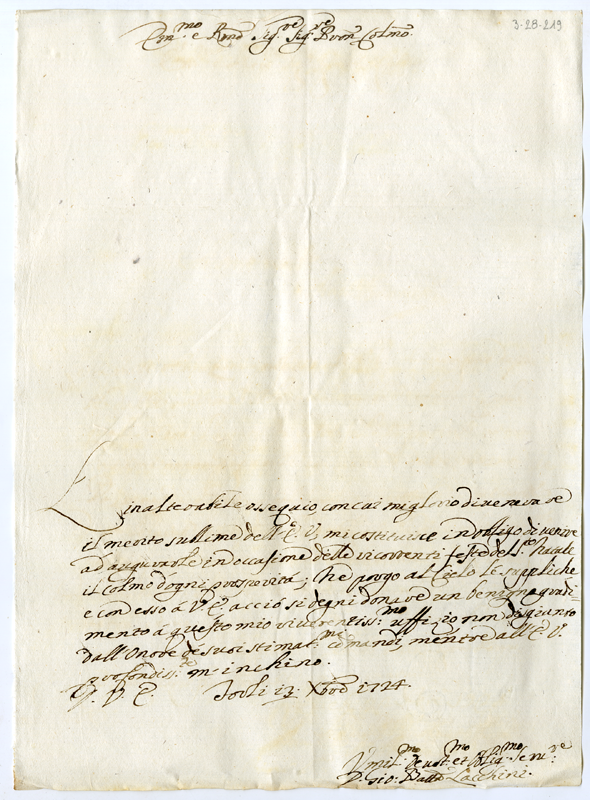 3-28-219
Em.mo e Rmo Sig.re Sig.re Pron Colmo
L'inalterabile ossequio, con cui mi glorio di venerare
il merito sublime dell'E. V. mi costituisce in obligo di venire
ad augurarle in occasione delle ricorrenti feste del S.to Natale
il colmo d'ogni prosperità; Ne porgo al Cielo le suppliche
e con esso à V. E. acciò si degni donare un benigno gradi-
mento à questo mio riverentiss.mo uffizio non disgiunto
dall'Onore de suoi stimat.mi comandi, mentre all'E. V.
profondiss.te m'inchino.
D. V. E. Forlì 13 Xbre 1724.
Umil.mo Devot.mo et Oblig.mo Serv.re
D. Gio: Batta Zacchini.